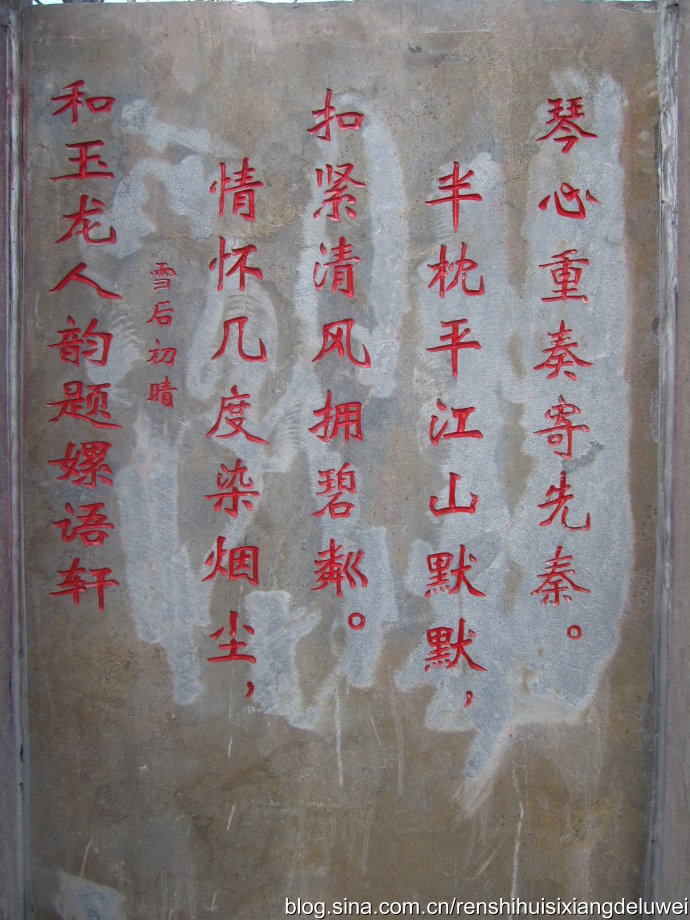 和玉龙人韵题嫘语轩
雪后初晴
情怀几度染烟尘，
扣紧清风拥碧粼。
半枕平江山默默，
琴心重奏寄先秦。
blog.sina.com.cn/renshihuisixiangdeluwei